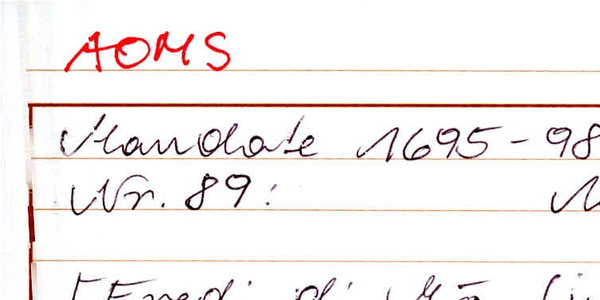 AOMS
Mandate 1695-98
Nr. 89:
di